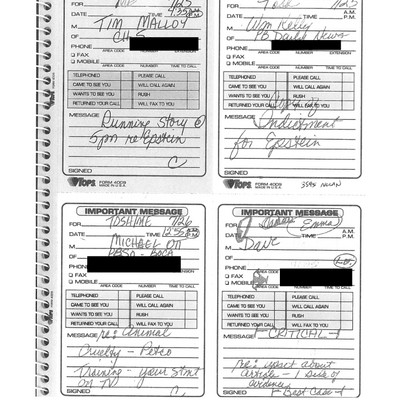 FOR 7/25
DATE TIME 4:35 P.M.
M TIM MALLOY
OF CH 5
PHONE
AREA CODE NUMBER EXTENSION
FAX
MOBILE
AREA CODE NUMBER TIME TO CALL
TELEPHONED PLEASE CALL
CAME TO SEE YOU WILL CALL AGAIN
WANTS TO SEE YOU RUSH
RETURNED YOUR CALL WILL FAX TO YOU
MESSAGE Running Story @
5pm re Epstein
SIGNED
TOPS FORM 4009
MADE IN U.S.A.
FOR 7/25
DATE TIME P.M.
M
OF PB Daily News
PHONE
AREA CODE NUMBER EXTENSION
FAX
MOBILE
AREA CODE NUMBER TIME TO CALL
TELEPHONED PLEASE CALL
CAME TO SEE YOU WILL CALL AGAIN
WANTS TO SEE YOU RUSH
RETURNED YOUR CALL WILL FAX TO YOU
MESSAGE Copy of
Indictment
for Epstein
SIGNED
TOPS FORM 4009
MADE IN U.S.A.
IMPORTANT MESSAGE
FOR 7/26
DATE TIME P.M.
M MICHAEL
OF PBSO - BOCA
PHONE
FAX
MOBILE
AREA CODE NUMBER TIME TO CALL
TELEPHONED PLEASE CALL
CAME TO SEE YOU WILL CALL AGAIN
WANTS TO SEE YOU RUSH
RETURNED YOUR CALL WILL FAX TO YOU
MESSAGE re: Animal
Cruelty - Petco
Training - your Stmt
on TV
SIGNED
IMPORTANT MESSAGE
FOR Emma
A.M.
DATE TIME P.M.
M Dave
OF
PHONE
FAX
MOBILE
AREA CODE NUMBER TIME TO CALL
TELEPHONED PLEASE CALL
CAME TO SEE YOU WILL CALL AGAIN
WANTS TO SEE YOU RUSH
RETURNED YOUR CALL WILL FAX TO YOU
MESSAGE CRITICAL
re: upset about
article - 1 Disc of
evidence
Best Case
SIGNED